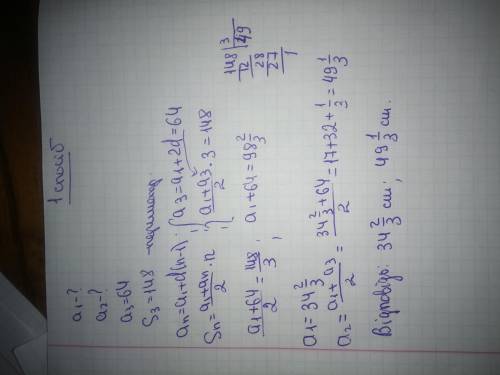 1 спосіб
a₁-?
a₂-?
a₃=64
S₃=148 - периметр.
aₙ=a₁+d(n-1); { a₃=a₁+2d=64
Sₙ=(a₁+aₙ)/2·n; { (a₁+a₃)/2·3=148
(a₁+64)/2=148/3; a₁+64=98 2/3
148|3
12|49
28
27
1
a₁=34 2/3
a₂=(a₁+a₃)/2=(34 2/3+64)/2=17+32+1/3=49 1/3
Відповідь: 34 2/3 см; 49 1/3 см.